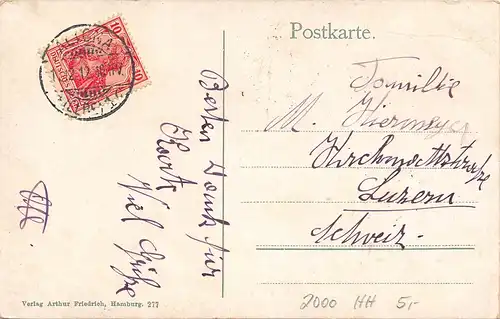 Postkarte.
10
10
Familie
M. Hiermeyer
Luzern
Schweiz.
Besten Dank für
Karte
Viel Grüße
Verlag Arthur Friedrich, Hamburg. 277
2000 HH 5,-